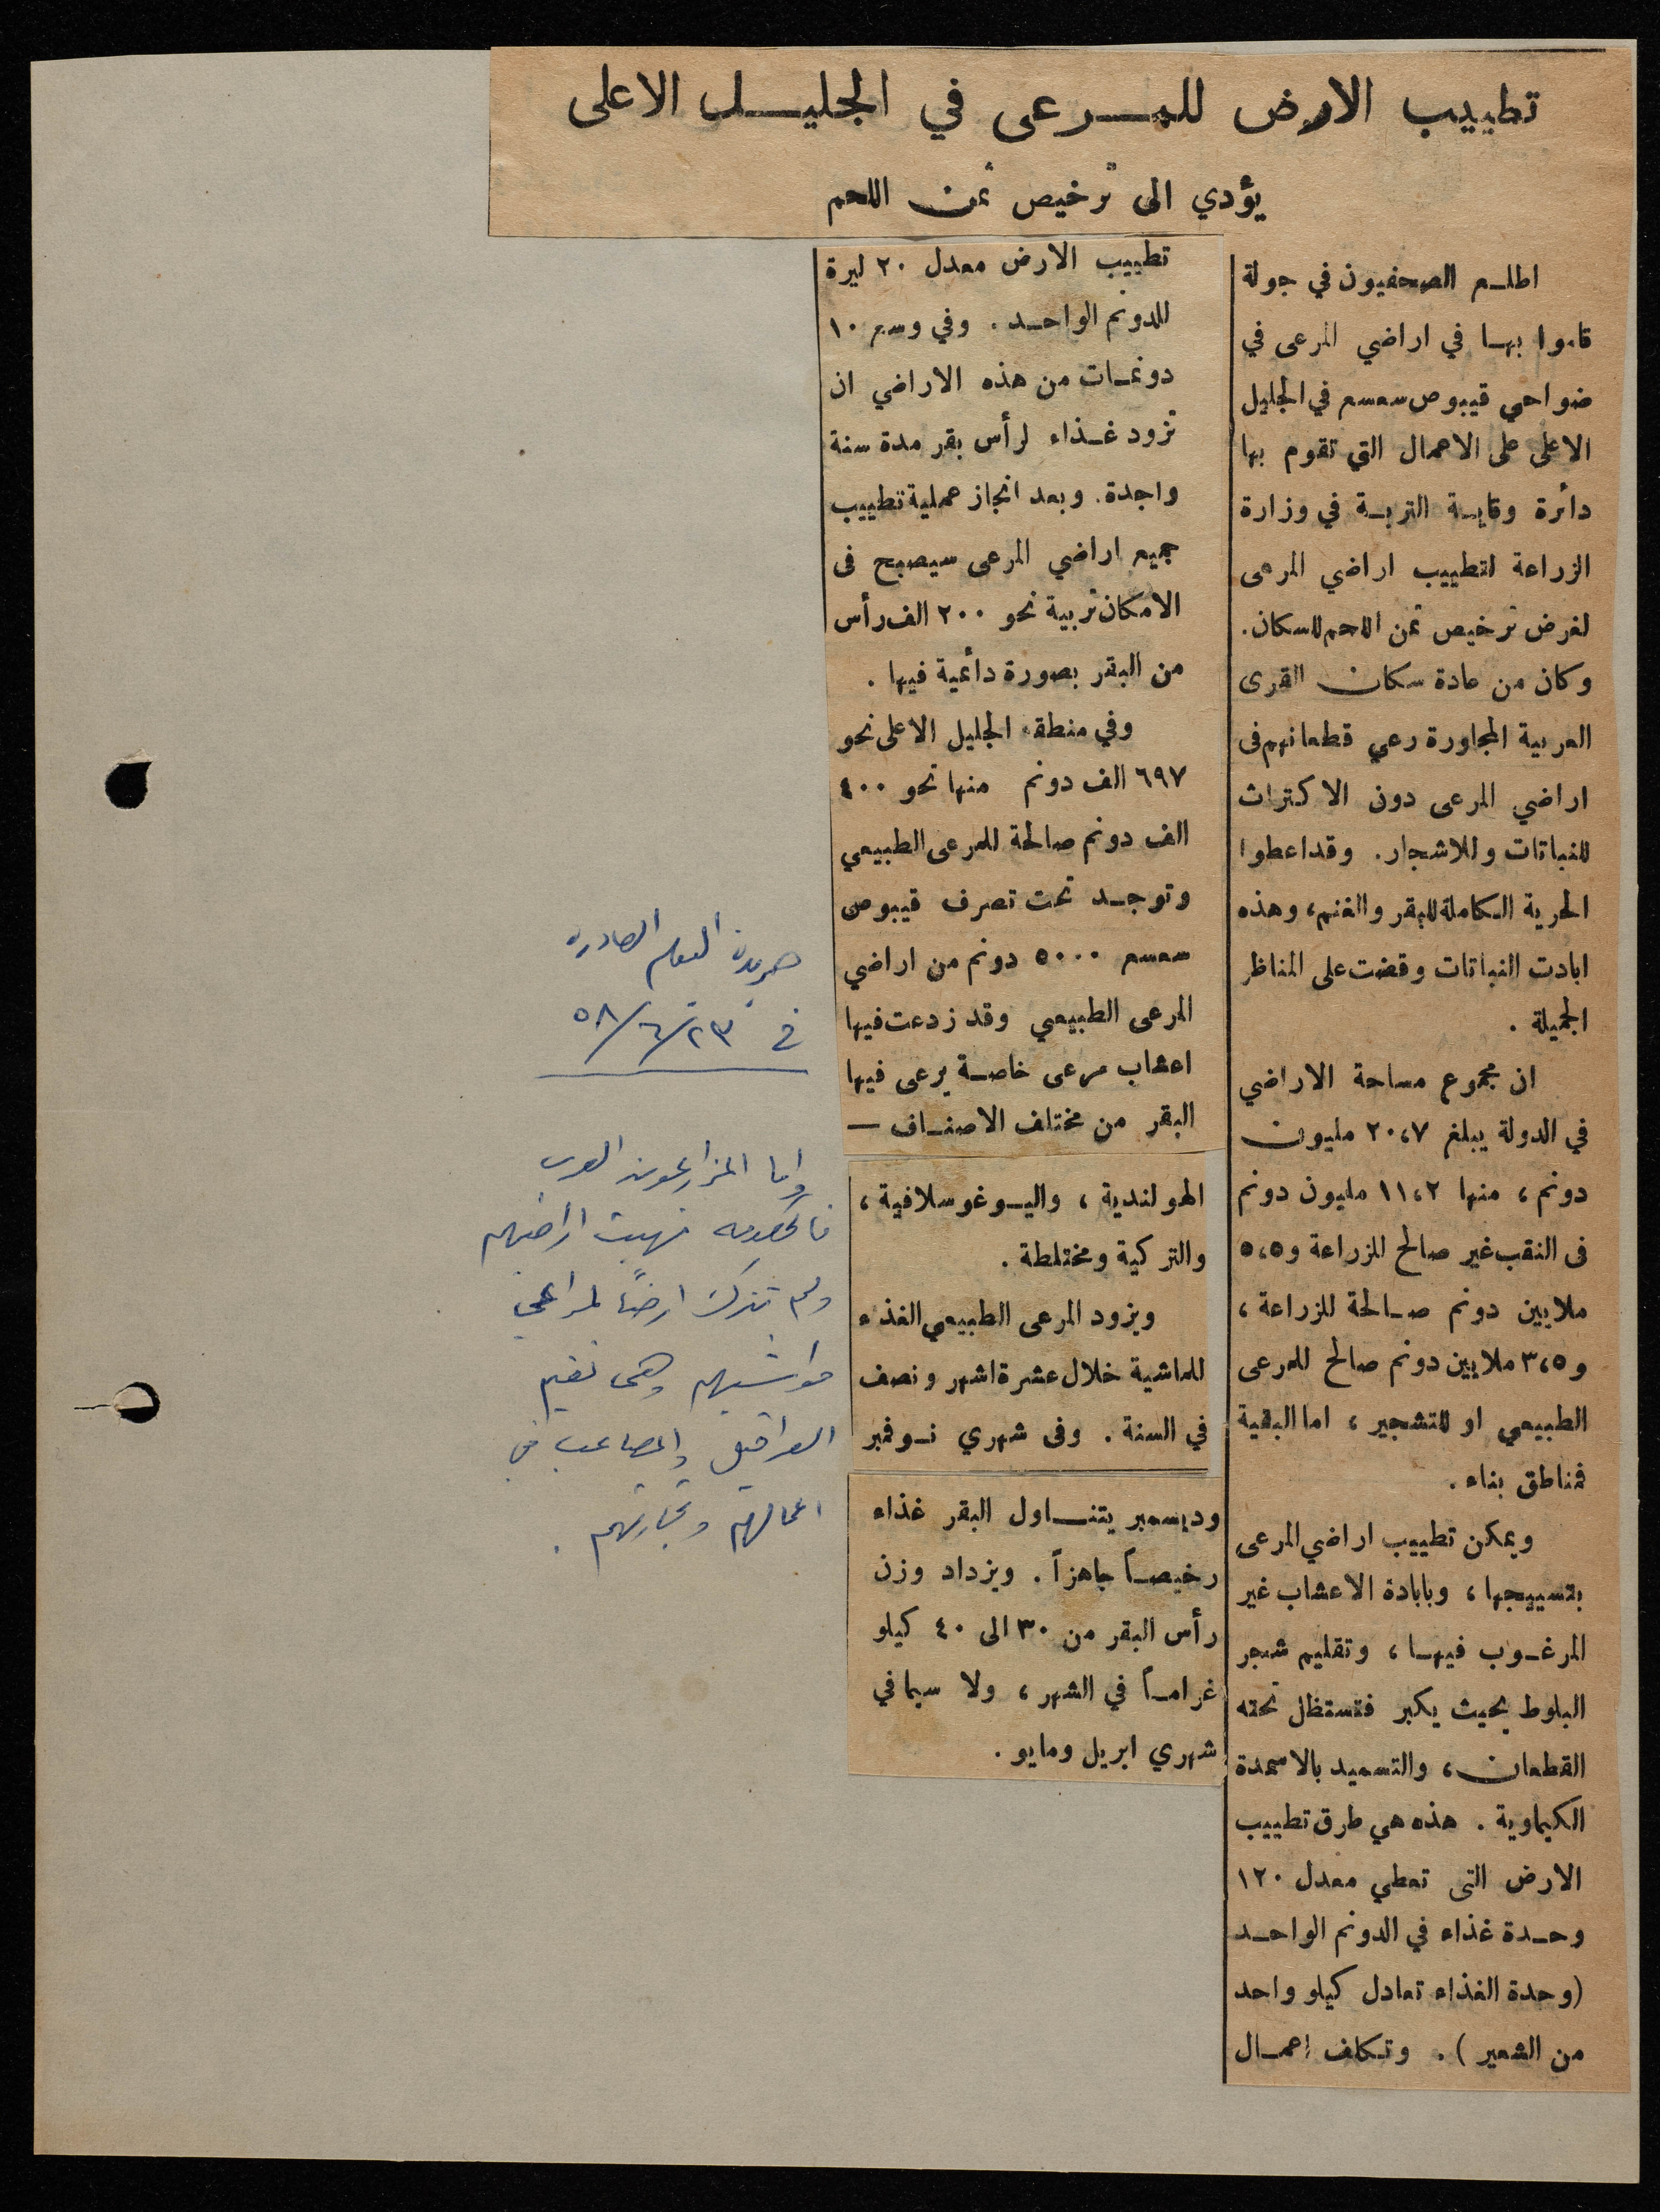 تطييب الارض للمرعى في الجليل الاعلى
يؤدي الى ترخيص ثمن اللحم
اطلع الصحفيون في جولة
قاموا بها في اراضي المرعى في
ضواحي قيبوص سعسع في الجليل
الاعلى على الاعمال التي تقوم بها
دائرة وقاية التربة في وزارة
الزراعة لتطييب اراضي المرعى
لغرض ترخيص ثمن اللحم للسكان.
وكان من عادة سكان القرى
العربية المجاورة رعي قطعانهم فى
اراضي المرعى دون الاكتراث
للنباتات وللاشجار. وقد اعطوا
الحرية الكاملة للبقر والغنم، وهذه
ابادت النباتات وقضت على المناظر
الجميلة.
ان مجموع مساحة الاراضي
في الدولة يبلغ ٢٠،٧ مليون
دونم، منها ١١،٢ مليون دونم
فى النقب غير صالح للزراعة و٥،٥
ملايين دونم صالحة للزراعة،
و٣،٥ ملايين دونم صالح للمرعى
الطبيعي او للتشجير، اما البقية
فمناطق بناء.
ويمكن تطييب اراضي المرعى
بتسييجها، وبابادة الاعشاب غير
المرغوب فيها، وتقليم شجر
البلوط بحيث يكبر فتستظل تحته
القطعان، والتسميد بالاسمدة
الكيماوية. هذه هي طرق تطييب
الارض التى تعطي معدل ١٢٠
وحدة غذاء في الدونم الواحد
(وحدة الغذاء تعادل كيلو واحد
من الشعير). وتكلف اعمال
تطييب الارض معدل ٢٠ ليرة
للدونم الواحد. وفي وسع ١٠
دونمات من هذه الاراضي ان
تزود غذاء لرأس بقر مدة سنة
واحدة. وبعد انجاز عملية تطييب
جميع اراضي المرعى سيصبح فى
الامكان تربية نحو ٢٠٠ الف رأس
من البقر بصورة دائمية فيها.
وفي منطقة الجليل الاعلى نحو
٦٩٧ الف دونم منها نحو ٤٠٠
الف دونم صالحة للمرعى الطبيعي
وتوجد تحت تصرف قيبوص
سعسع ٥٠٠٠ دونم من اراضي
المرعى الطبيعي وقد زرعت فيها
اعشاب مرعى خاصة يرعى فيها
البقر من مختلف الاصناف —
الهولندية، واليوغوسلافية،
والتركية ومختلطة.
ويزود المرعى الطبيعي الغذاء
للماشية خلال عشرة اشهر ونصف
في السنة. وفى شهري نوفمبر
وديسمبر يتناول البقر غذاء
رخيصاً جاهزاً. ويزداد وزن
رأس البقر من ٣٠ الى ٤٠ كيلو
غراماً في الشهر، ولا سيما في
شهري ابريل ومايو.
جريدة اليوم الصادرة
في ٢٣/٦/٥٨
واما المزارعون العرب
فالحكومة نهبت اراضيهم
ولم تترك ارضاً لمراعي
مواشيهم وهي تقيم
العراقيل والمصاعب في
اعمالهم وتجارتهم.